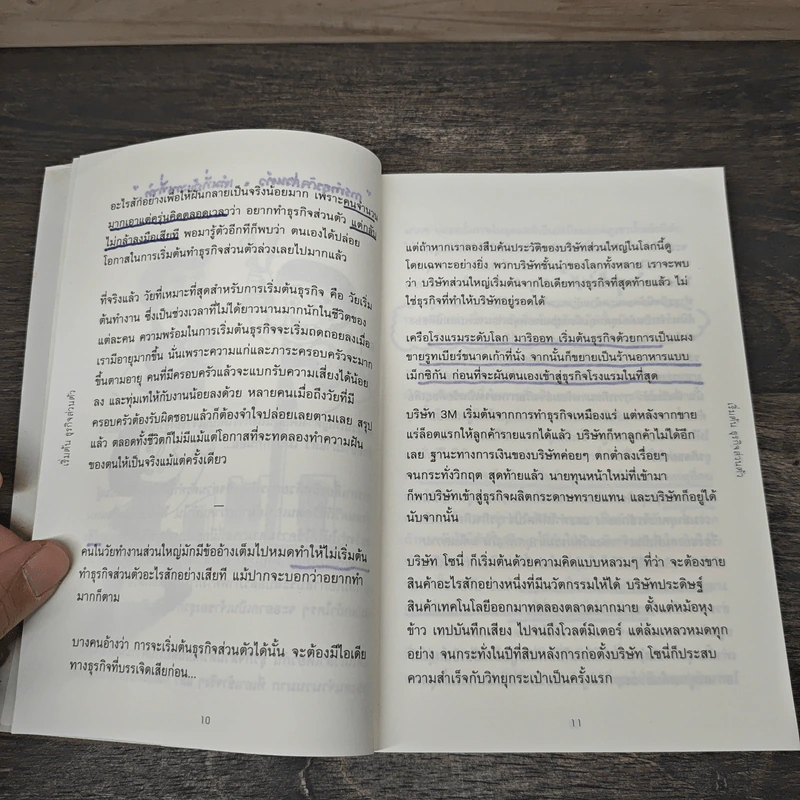 อะไรสักอย่างเพื่อให้ฝันกลายเป็นจริงน้อยมาก เพราะคนจำนวน
มากเอาแต่ครุ่นคิดตลอดเวลาว่า อยากทำธุรกิจส่วนตัว แต่กลับ
ไม่กล้าลงมือเสียที พอมารู้ตัวอีกทีก็พบว่า ตนเองได้ปล่อย
โอกาสในการเริ่มต้นทำธุรกิจส่วนตัวล่วงเลยไปมากแล้ว
ที่จริงแล้ว วัยที่เหมาะที่สุดสำหรับการเริ่มต้นธุรกิจ คือ วัยเริ่ม
ต้นทำงาน ซึ่งเป็นช่วงเวลาที่ไม่ได้ยาวนานมากนักในชีวิตของ
แต่ละคน ความพร้อมในการเริ่มธุรกิจจะเริ่มถดถอยลงเมื่อ
เรามีอายุมากขึ้น นั่นเพราะความแก่และภาระครอบครัวจะมาก
ขึ้นตามอายุ คนที่มีครอบครัวแล้วจะแบกรับความเสี่ยงได้น้อย
ลง และทุ่มเทให้กับงานน้อยลงด้วย หลายคนเมื่อถึงวัยที่มี
ครอบครัวต้องรับผิดชอบแล้วก็ต้องจำใจปล่อยเลยตามเลย สรุป
แล้ว ตลอดทั้งชีวิตก็ไม่มีแม้แต่โอกาสที่จะทดลองทำความฝัน
ของตนให้เป็นจริงแม้แต่ครั้งเดียว
—
คนในวัยทำงานส่วนใหญ่มักมีข้ออ้างเต็มไปหมดทำให้ไม่เริ่มต้น
ทำธุรกิจส่วนตัวอะไรสักอย่างเสียที แม้ปากจะบอกว่าอยากทำ
มากก็ตาม
บางคนอ้างว่า การจะเริ่มต้นธุรกิจส่วนตัวได้นั้น จะต้องมีไอเดีย
ทางธุรกิจที่บรรเจิดเสียก่อน...
เริ่มต้น ธุรกิจส่วนตัว
10
แต่ถ้าหากเราลองสืบค้นประวัติของบริษัทส่วนใหญ่ในโลกนี้ดู
โดยเฉพาะอย่างยิ่ง พวกบริษัทชั้นนำของโลกทั้งหลาย เราจะพบ
ว่า บริษัทส่วนใหญ่เริ่มต้นจากไอเดียทางธุรกิจที่สุดท้ายแล้ว ไม่
ใช่ธุรกิจที่ทำให้บริษัทอยู่รอดได้
เครือโรงแรมระดับโลก มาริออท เริ่มต้นธุรกิจด้วยการเป็นแผง
ขายรูทเบียร์ขนาดเก้าที่นั่ง จากนั้นก็ขยายเป็นร้านอาหารแบบ
เม็กซิกัน ก่อนที่จะผันตนเองเข้าสู่ธุรกิจโรงแรมในที่สุด
บริษัท 3M เริ่มต้นจากการทำธุรกิจเหมืองแร่ แต่หลังจากขาย
แร่ล็อตแรกให้ลูกค้ารายแรกได้แล้ว บริษัทก็หาลูกค้าไม่ได้อีก
เลย ฐานะทางการเงินของบริษัทค่อยๆ ตกต่ำลงเรื่อยๆ
จนกระทั่งวิกฤต สุดท้ายแล้ว นายทุนหน้าใหม่ที่เข้ามา
ก็พาบริษัทเข้าสู่ธุรกิจผลิตกระดาษทรายแทน และบริษัทก็อยู่ได้
นับจากนั้น
บริษัท โซนี่ ก็เริ่มต้นด้วยความคิดแบบหลวมๆ ที่ว่า จะต้องขาย
สินค้าอะไรสักอย่างหนึ่งที่มีนวัตกรรมให้ได้ บริษัทประดิษฐ์
สินค้าเทคโนโลยีออกมาทดลองตลาดมากมาย ตั้งแต่หม้อหุง
ข้าว เทปบันทึกเสียง ไปจนถึงโวลต์มิเตอร์ แต่ล้มเหลวหมดทุก
อย่าง จนกระทั่งในปีที่สิบหลังการก่อตั้งบริษัท โซนี่ก็ประสบ
ความสำเร็จกับวิทยุกระเป๋าเป็นครั้งแรก
เริ่มต้น ธุรกิจส่วนตัว
11